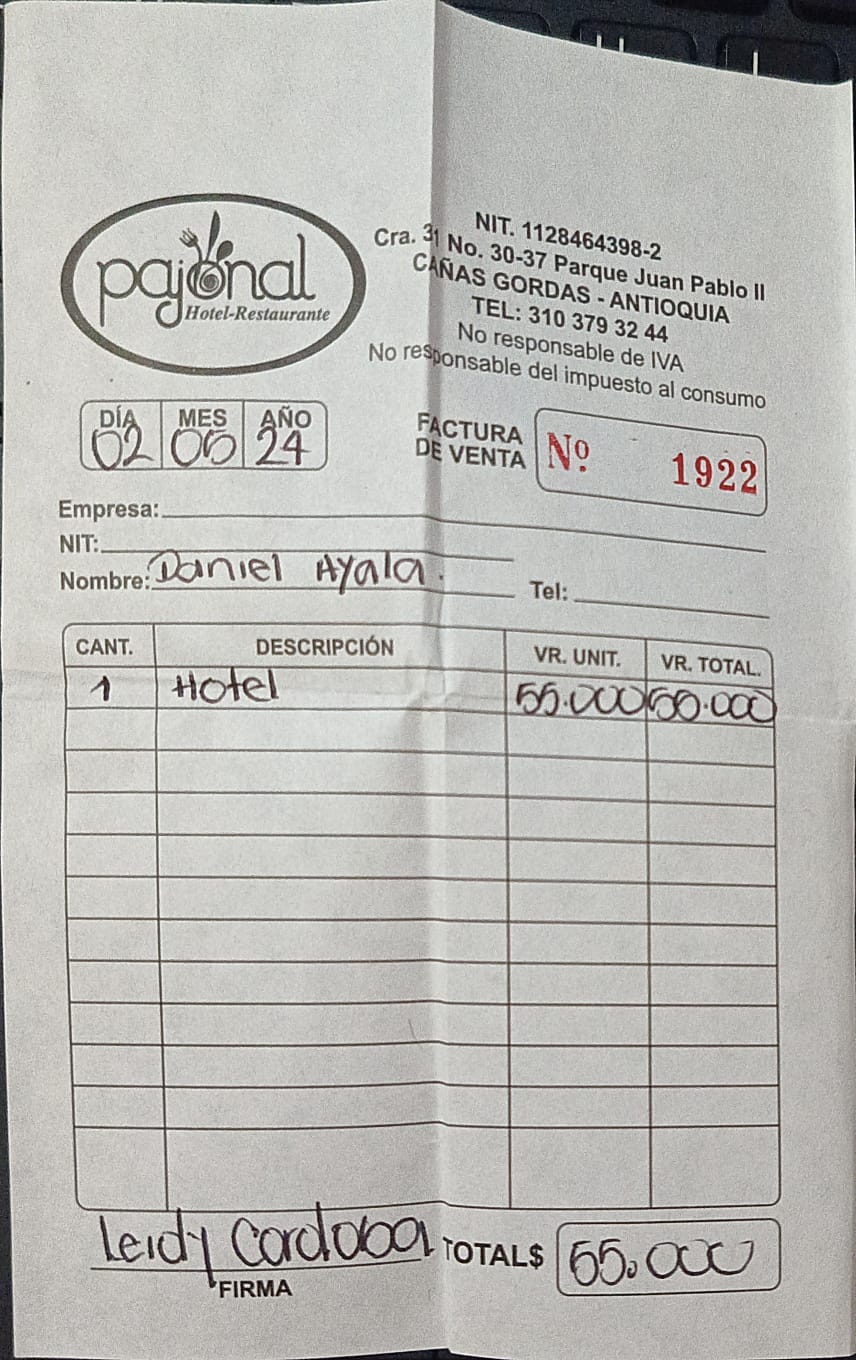 pajonal
Hotel-Restaurante
NIT. 1128464398-2
Cra. 31 No. 30-37 Parque Juan Pablo II
CAÑAS GORDAS - ANTIOQUIA
TEL: 310 379 32 44
No responsable de IVA
No responsable del impuesto al consumo
DÍA MES AÑO
02 05 24
FACTURA
DE VENTA
Nº. 1922
Empresa:
NIT:
Nombre: Daniel Ayala.
Tel:
CANT. DESCRIPCIÓN VR. UNIT. VR. TOTAL.
1 Hotel 55.000 55.000
Leidy Cordoba TOTAL$ 55.000
FIRMA